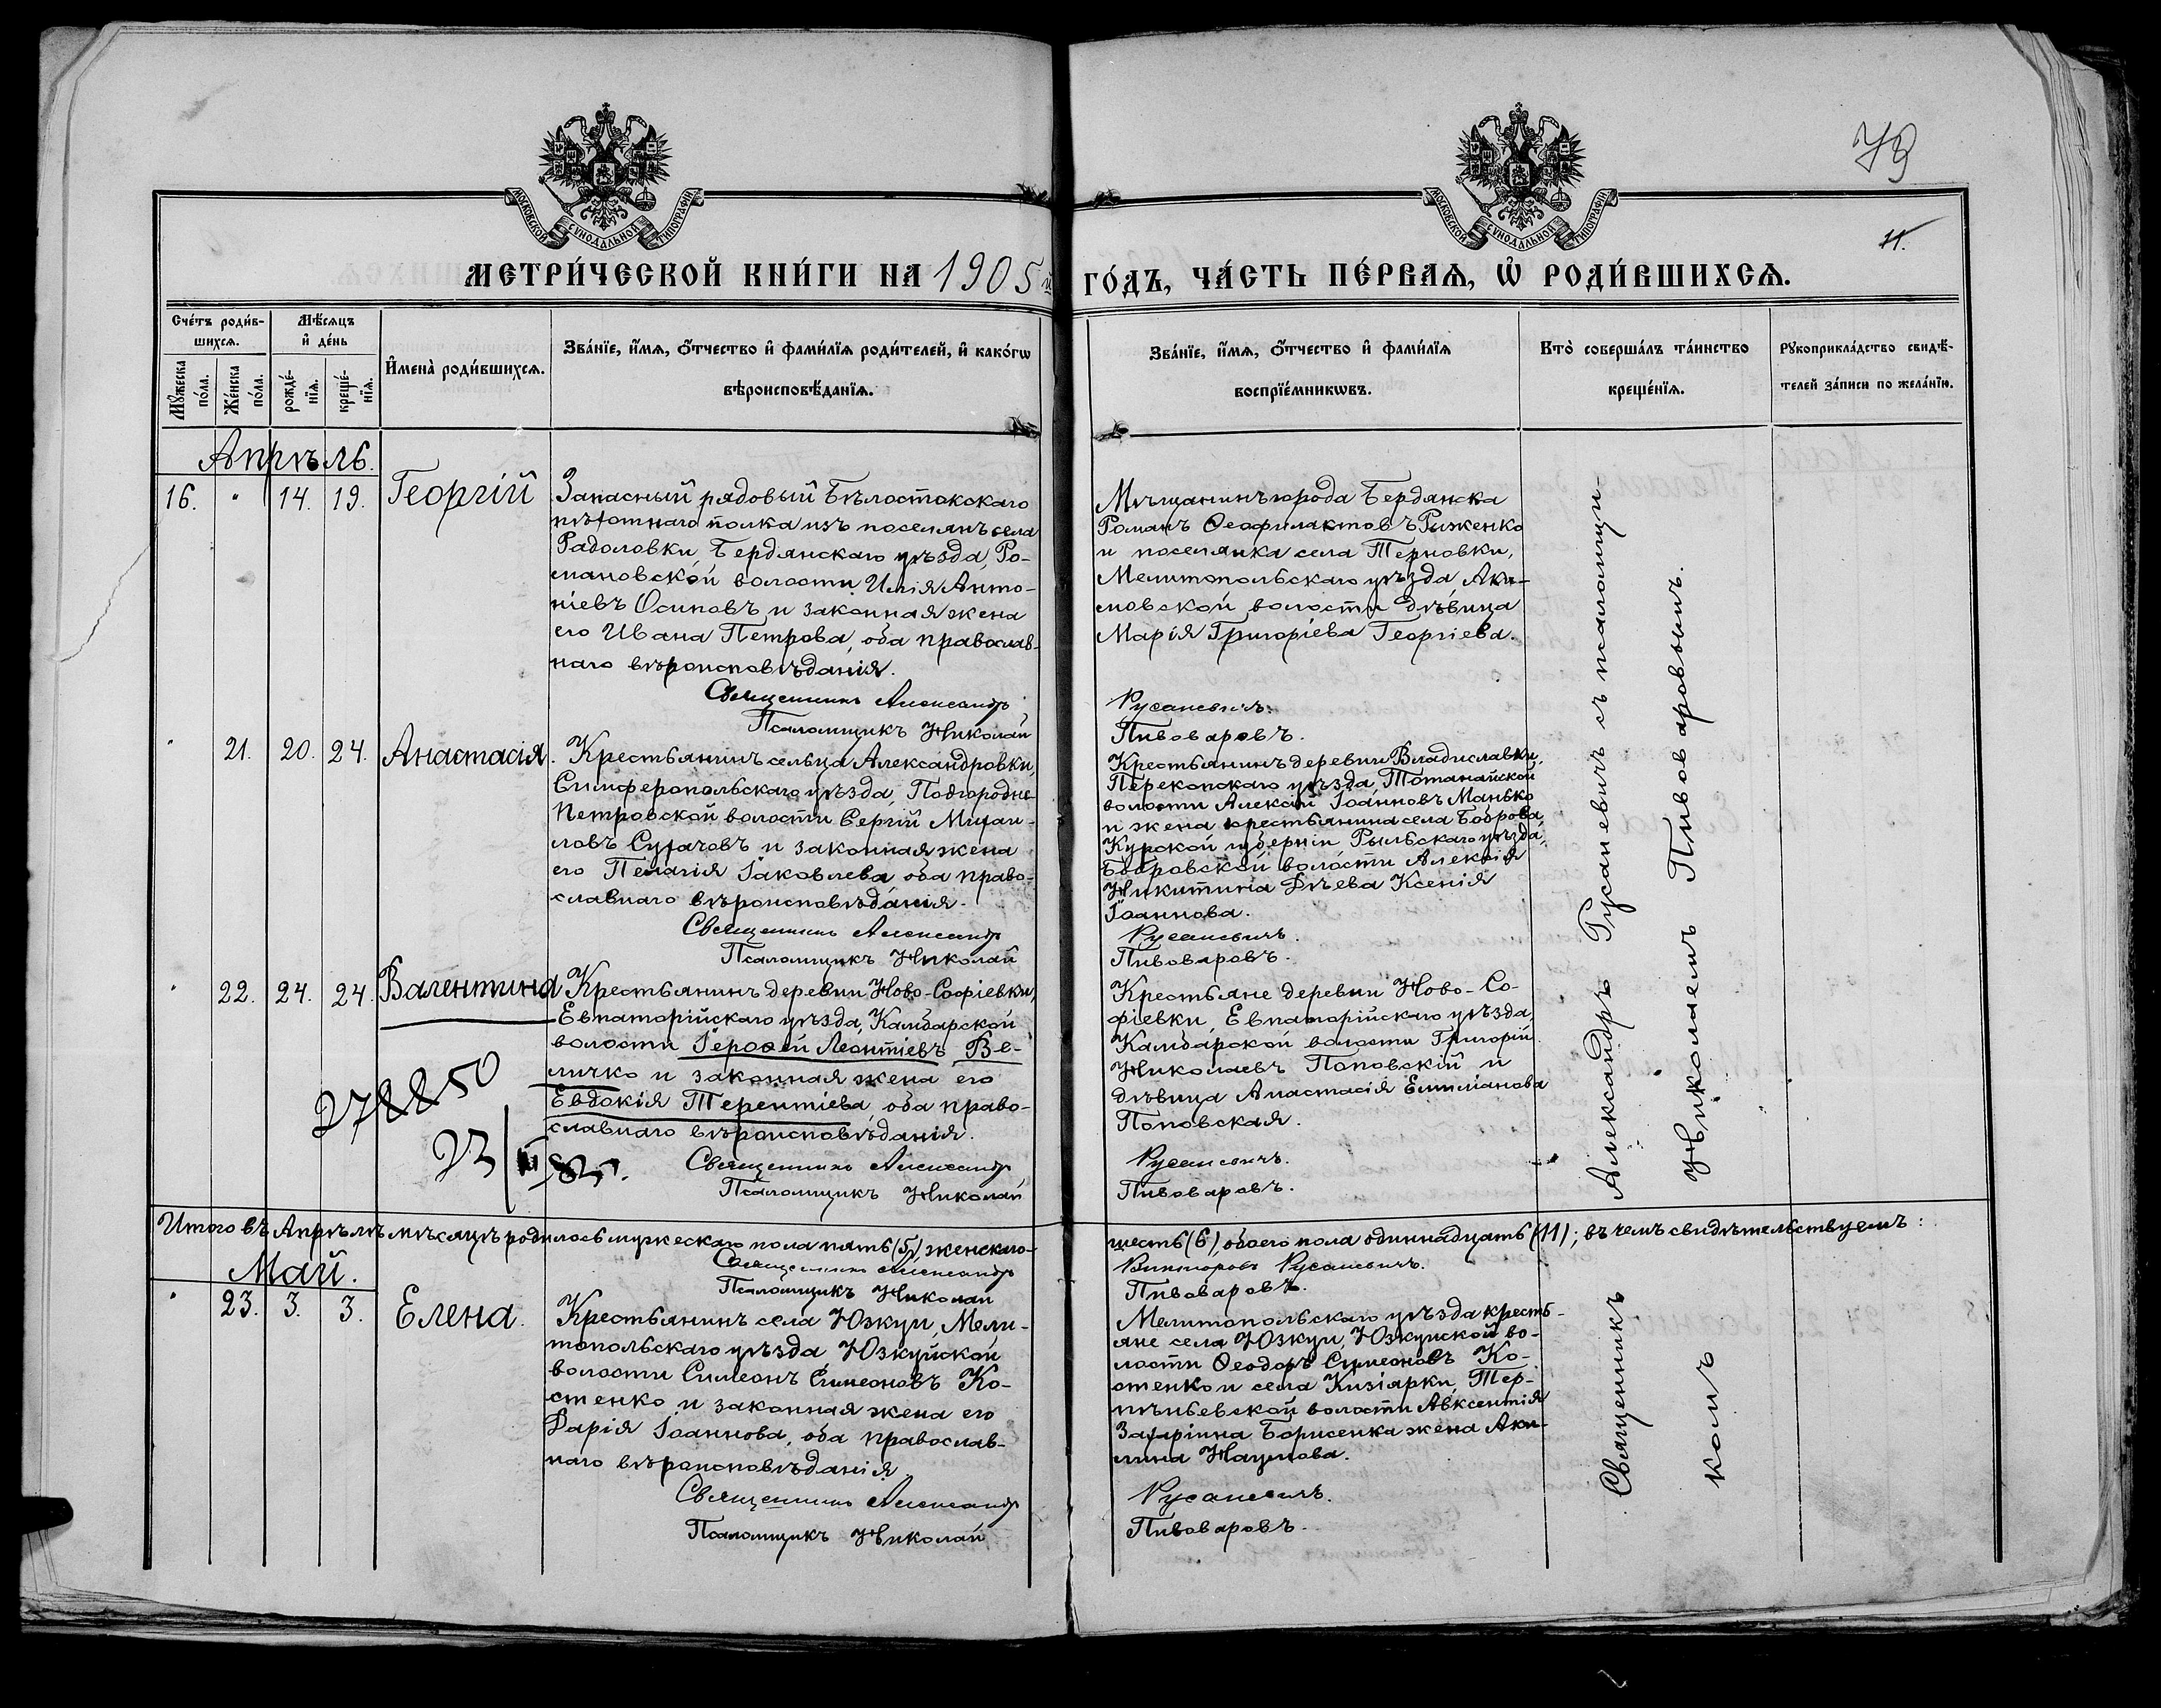 73
11.
МОСКОВСКОЙ СѴНОДАЛЬНОЙ ТИПОГРАФІИ
МОСКОВСКОЙ СѴНОДАЛЬНОЙ ТИПОГРАФІИ
МЕТРИ́ЧЕСКОЙ КНИ́ГИ НА 1905й ГО́ДЪ, ЧА́СТЬ ПЕ́РВАѦ, Ѽ РОДИ́ВШИХСѦ.
Сче́тъ роди́в-
шихсѧ.
Мѣ́сѧцъ
и҆ де́нь
Мꙋ́жеска
по́ла.
Же́нска
по́ла.
рожде́-
нїѧ.
креще́-
нїѧ.
И҆мена̀ роди́вшихсѧ.
Зва́нїе, и҆́мѧ, ѻ҆́тчество и҆ фами́лїѧ роди́телей, и҆ како́гѡ
вѣроисповѣ́данїѧ.
Зва́нїе, и҆́мѧ, ѻ҆́тчество и҆ фами́лїѧ
воспрїе́мникѡвъ.
Кто̀ соверша́лъ та́инство
креще́нїѧ.
Рꙋкоприкла́дство свидѣ́-
телей за́писи по жела́нїю.
Апрѣль.
16. " 14. 19. Георгій
Запасный рядовый Бѣлостокскаго
пѣхотнаго полка изъ поселянъ села
Радоловки, Бердянскаго уѣзда, Ро-
мановской волости Илія Анто-
ніевъ Осиповъ и законная жена
его Ивана Петрова, оба православ-
наго вѣроисповѣданія.
Священникъ Александръ
Псаломщикъ Николай
Мѣщанинъ города Бердянска
Романъ Ѳеофилактовъ Рыженко
и поселянка села Терновки,
Мелитопольскаго уѣзда Аки-
мовской волости дѣвица
Марія Григоріева Георгіева.
Русаневичъ.
Пивоваровъ.
" 21. 20. 24. Анастасія.
Крестьянинъ сельца Александровки,
Симферопольскаго уѣзда, Подгородне-
Петровской волости Сергій Михаи-
ловъ Сухачовъ и законная жена
его Пелагія Іаковлева оба право-
славнаго вѣроисповѣданія.
Священникъ Александръ
Псаломщикъ Николай
Крестьянинъ деревни Владиславки,
Перекопскаго уѣзда, Тотанайской
волости Алексій Іоанновъ Манько
и жена крестьянина села Боброва,
Курской губерніи Рыльскаго уѣзда,
Бобровской волости Алексія
Никитина Дѣева Ксенія
Іоаннова.
Русаневичъ.
Пивоваровъ.
" 22. 24. 24. Валентина
Крестьянинъ деревни Ново-Софіевки,
Евпаторійскаго уѣзда, Камбарской
волости Іероѳей Леонтіевъ Ве-
личко и законная жена его
Евдокія Терентіева, оба право-
славнаго вѣроисповѣданія.
Священникъ Александръ
Псаломщикъ Николай
Крестьяне деревни Ново-Со-
фіевки, Евпаторійскаго уѣзда,
Камбарской волости Григорій
Николаевъ Поповскій и
дѣвица Анастасія Емиліанова
Поповская.
Русаневичъ.
Пивоваровъ.
Итого въ Апрѣлѣ мѣсяцѣ родилось мужескаго пола пять (5) женскаго - шесть (6), обоего пола одиннадцать (11); въ чемъ свидѣтельствуемъ:
Священникъ Александръ
Викторовъ Русаневичъ.
Псаломщикъ Николай
Пивоваровъ.
Май.
" 23. 3. 3. Елена.
Крестьянинъ села Юзкуи, Мели-
топольскаго уѣзда, Юзкуйской
волости Симеонъ Симеоновъ Ко-
стенко и законная жена его
Дарія Іоаннова, оба православ-
наго вѣроисповѣданія.
Священникъ Александръ
Псаломщикъ Николай
Мелитопольскаго уѣзда кресть-
яне села Юзкуи, Юзкуйской во-
лости Ѳеодоръ Симеоновъ Ко-
стенко и села Кизіярки, Тер-
пѣньевской волости Авксентія
Захаріина Борисенка жена Аки-
лина Наумова.
Русаневичъ.
Пивоваровъ.
Священникъ Александръ Русаневичъ съ псаломщи-
комъ Николаемъ Пивоваровымъ.